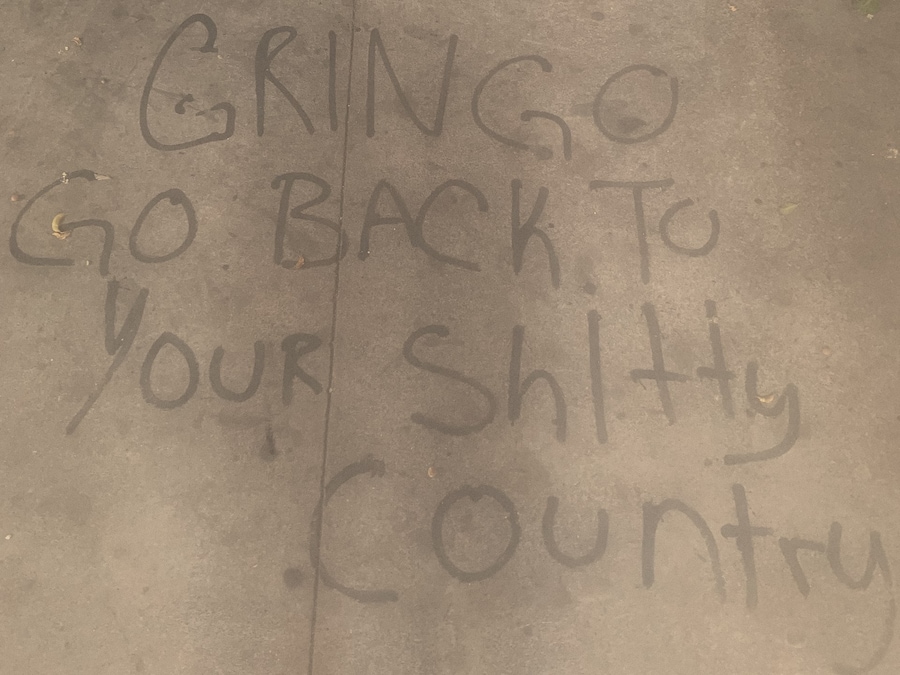 GRINGO
GO BACK TO
YOUR ShItty
Country